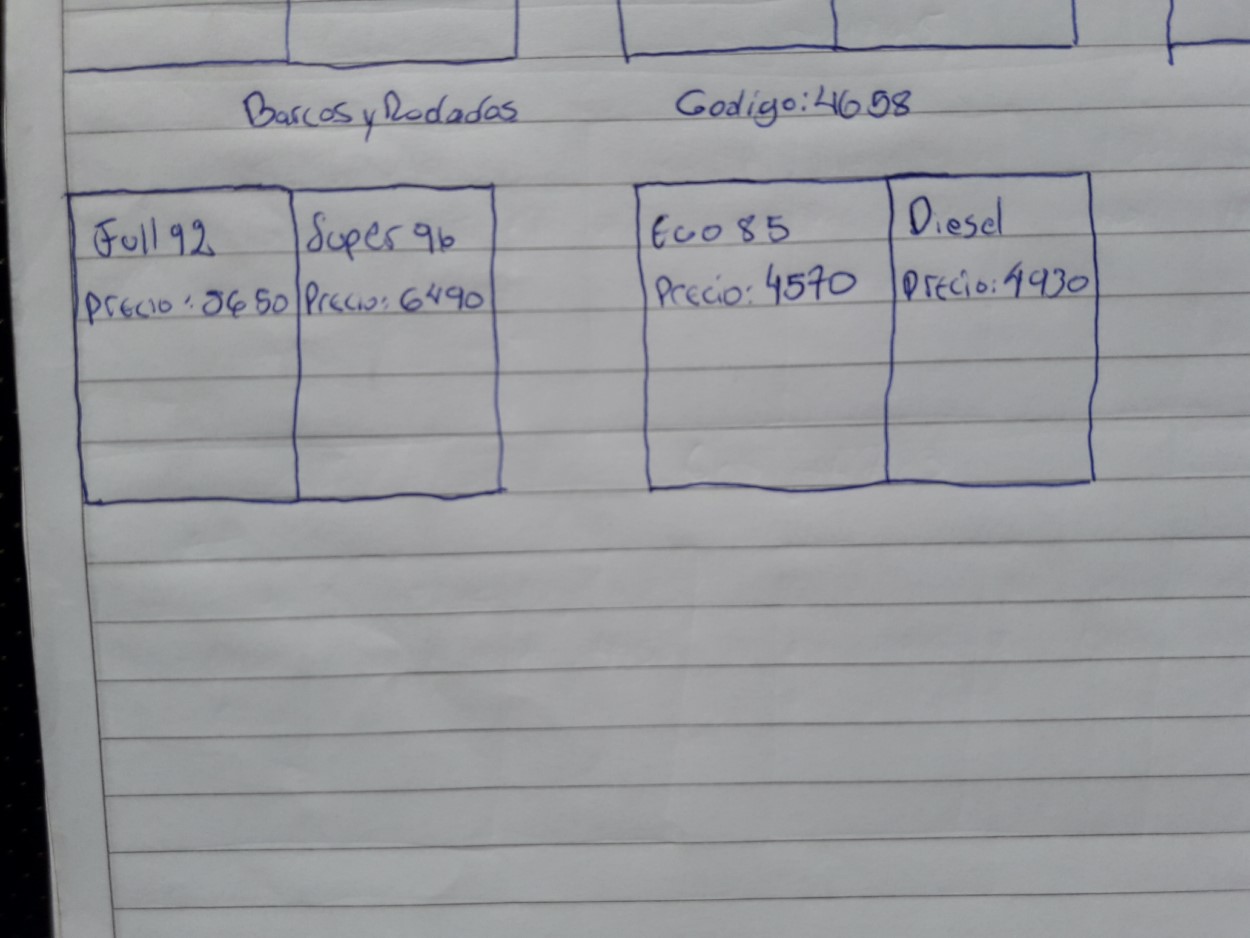 Barcos y Rodados
Codigo: 4658
Full 92
Precio: 5650
Super 96
Precio: 6490
Eco 85
Precio: 4570
Diesel
Precio: 4930